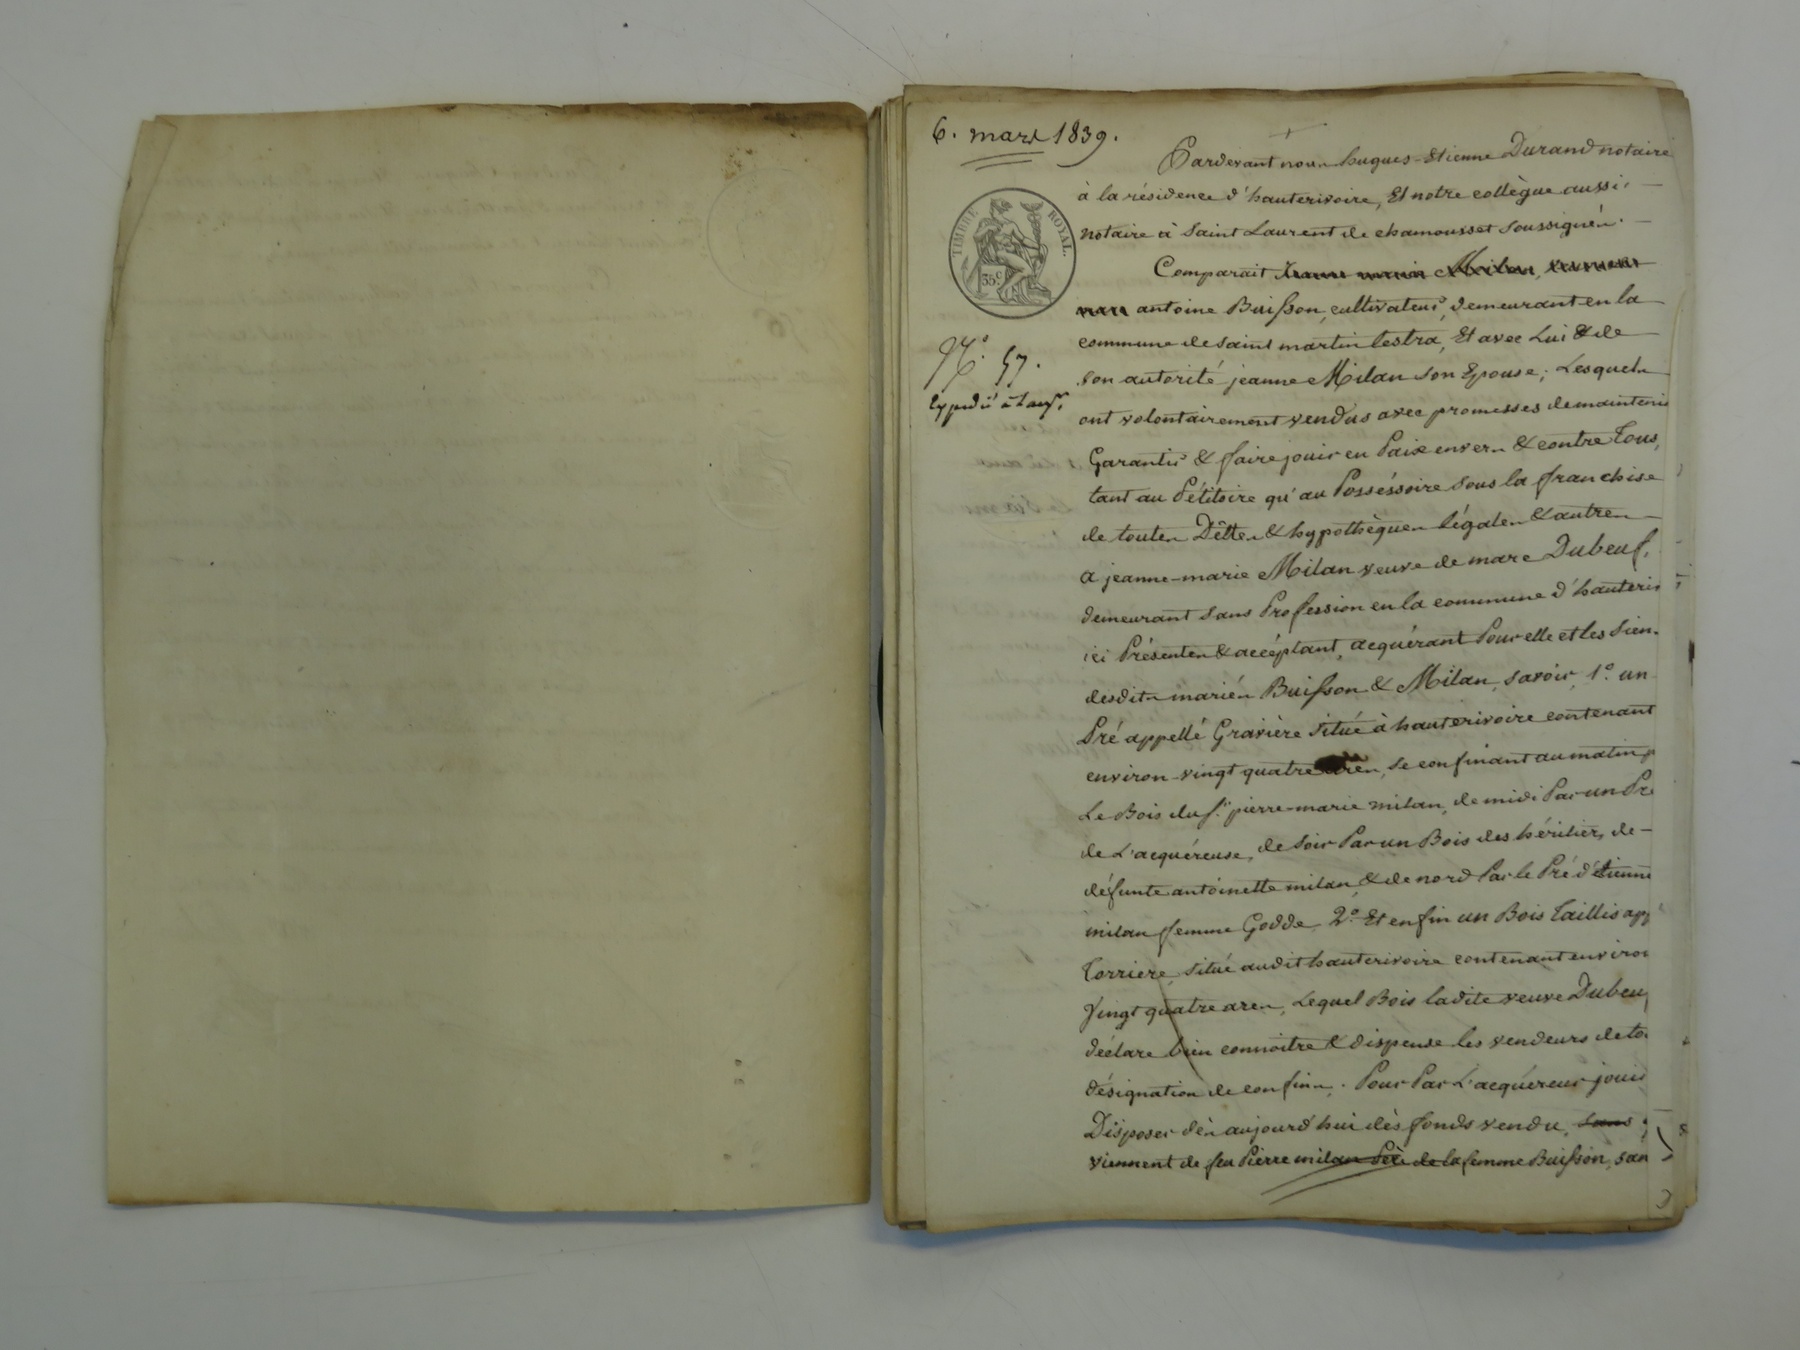 6. mars 1839.
Pardevant nous hugues-Etienne Durand notaire
à la résidence d'hauterivoire, Et notre collègue aussi
notaire à Saint Laurent de chamousset soussignés.
TIMBRE ROYAL.
35c
Comparait Jeanne marie Milan,
antoine Buisson, cultivateur, demeurant en la
commune de saint martin lestra, Et avec Lui & de
N.o 57.
son autorité jeanne Milan son Epouse; Lesquels
Expédié à l'acqr.
ont volontairement vendus avec promesses de maintenir
Garantir & faire jouir en Paix envers & contre Tous,
tant au Pétitoire qu'au Posséssoire sous la franchise
de toutes Dêttes & hypothèques légales & autres
a jeanne-marie Milan veuve de marc Dubeuf,
demeurant sans Profession en la commune d'hauteriv
ici Présentes & accéptant, acquérant Pour elle et les Siens
desdits mariés Buisson & Milan, savoir, 1.o un
Pré appellé Gravière situé à hauterivoire contenant
environ vingt quatre ares, se confinant au matin p
Le Bois du S.r pierre-marie milan, de midi Par un Pré
de L'acquéreuse, de soir Par un Bois des héritiers de
défunte antoinette milan, & de nord Par le Pré d'étienne
milan femme Godde. 2.o Et enfin un Bois Taillis app
Torrière, situé audit hauterivoire contenant environ
Vingt quatre ares, Lequel Bois ladite veuve Dubeu
déclare bien connoitre & dispense les vendeurs de to
désignation de confins. Pour Par L'acquéreur jouir
Disposer dès aujourd'hui dès fonds vendu, sans
viennent de feu Pierre milan Père de la femme Buisson, san